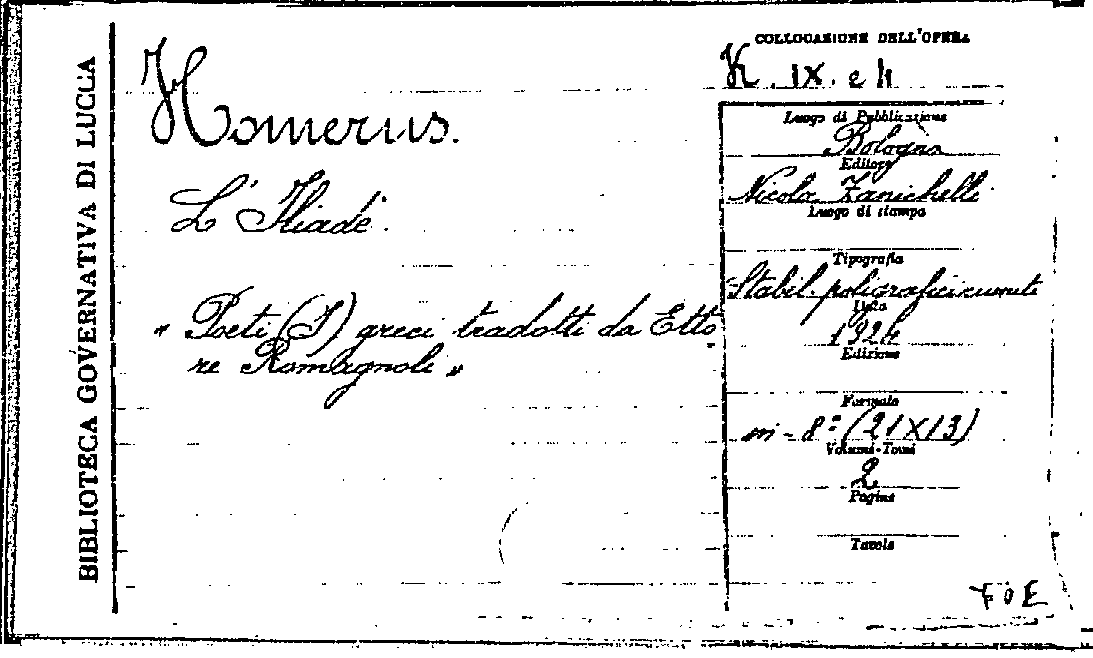 BIBLIOTECA GOVERNATIVA DI LUCCA
Homerus.
L'Iliade.
" Poeti (I) greci tradotti da Etto-
re Romagnoli "
COLLOCAZIONE DELL'OPERA
K. IX. e 4
Luogo di Pubblicazione
Bologna
Editore
Nicola Zanichelli
Luogo di stampa
Tipografia
Stabil. poligrafici riuniti
Data
1924
Edizione
Formato
in - 8° (21X13)
Volumi-Tomi
2
Pagine
Tavole
FOE